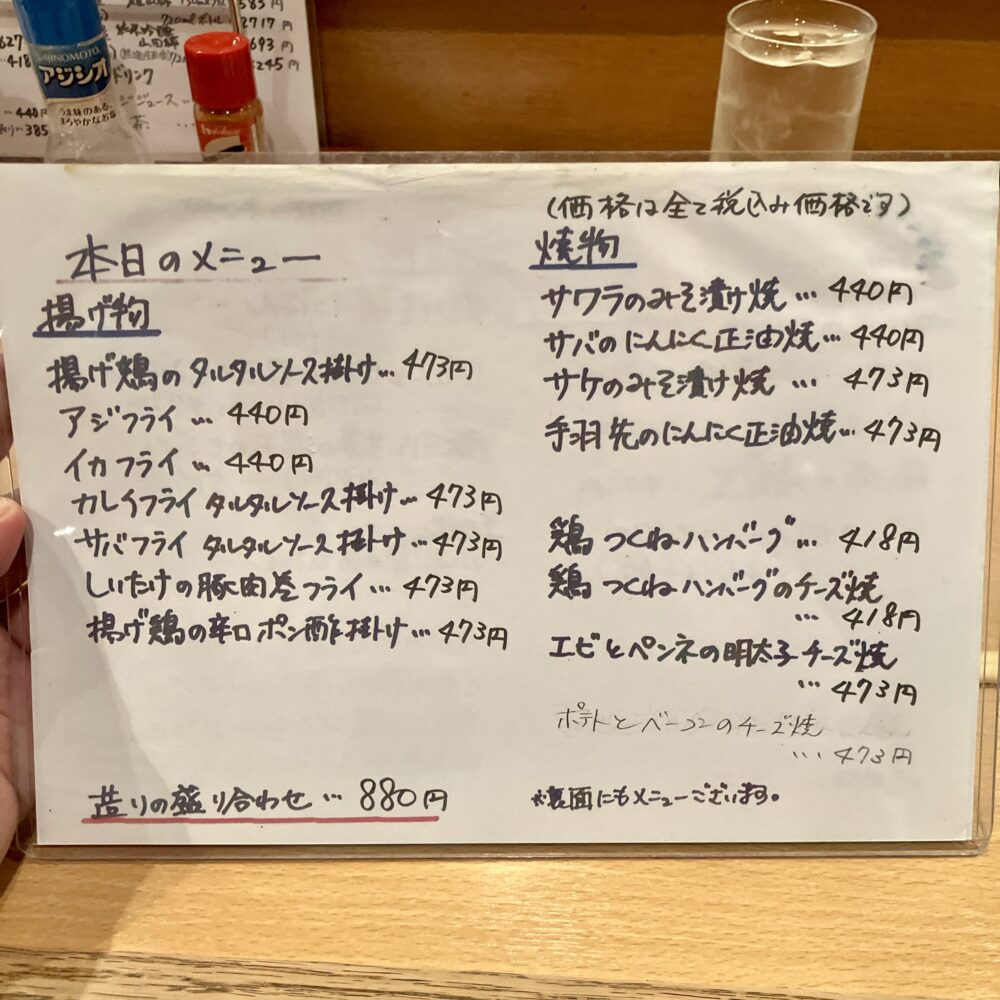 583円
720mlボトル
2717円
純米吟醸
山田錦
693円
3245円
627
418
ドリンク
440円
385
AJINOMOTO
アジシオ
うま味のある、
まろやかなお塩
(価格は全て税込み価格です)
本日のメニュー
揚げ物
揚げ鶏のタルタルソース掛け…473円
アジフライ…440円
イカフライ…440円
カレイフライタルタルソース掛け…473円
サバフライタルタルソース掛け…473円
しいたけの豚肉巻フライ…473円
揚げ鶏の辛口ポン酢掛け…473円
造りの盛り合わせ…880円
焼物
サワラのみそ漬け焼…440円
サバのにんにく正油焼…440円
サケのみそ漬け焼…473円
手羽先のにんにく正油焼…473円
鶏つくねハンバーグ…418円
鶏つくねハンバーグのチーズ焼
…418円
エビとペンネの明太子チーズ焼
…473円
ポテトとベーコンのチーズ焼
…473円
※裏面にもメニューございます。